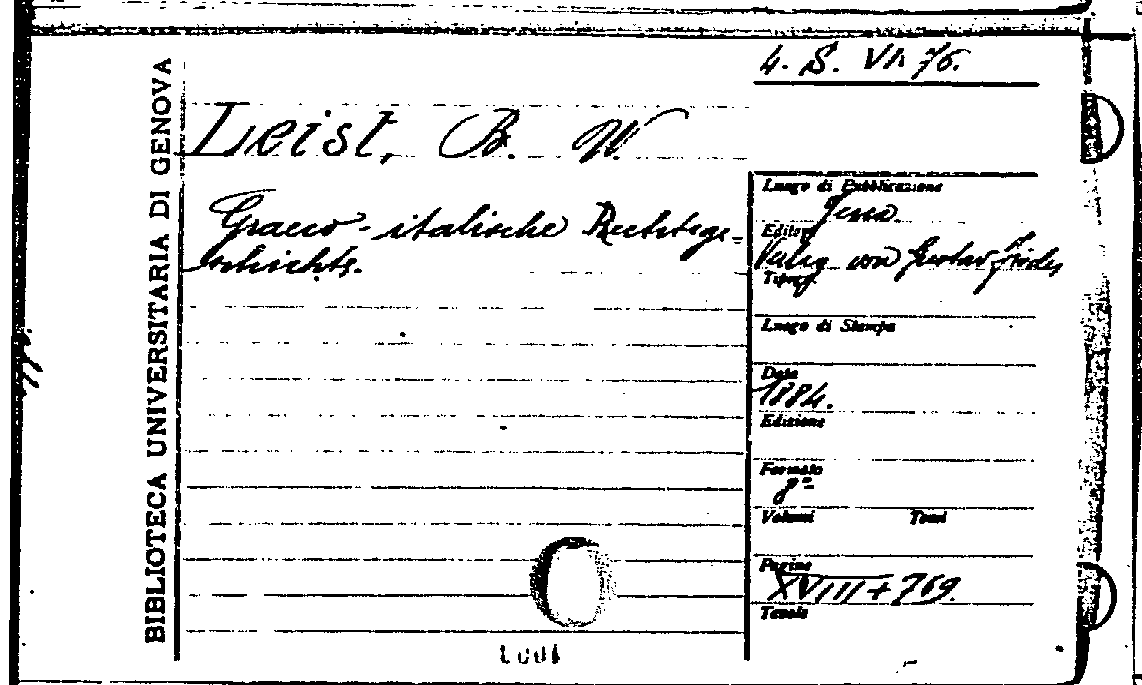 4. S. VI. 76.
BIBLIOTECA UNIVERSITARIA DI GENOVA
Leist, B. W.
Graeco-italische Rechtsge-
schichte.
Luogo di Pubblicazione
Jena
Editore
Verlag von Gustav Fischer
Tipogr.
Luogo di Stampa
Data
1884.
Edizione
Formato
8º
Volumi Tomi
Pagine
XVIII + 769.
Tavole